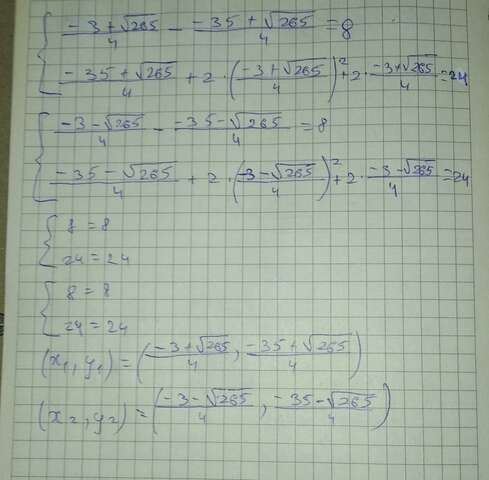 { (-3+√265)/4 - (-35+√265)/4 = 8
(-35+√265)/4 + 2·((-3+√265)/4)² + 2·(-3+√265)/4 = 24
{ (-3-√265)/4 - (-35-√265)/4 = 8
(-35-√265)/4 + 2·((-3-√265)/4)² + 2·(-3-√265)/4 = 24
{ 8 = 8
24 = 24
{ 8 = 8
24 = 24
(x₁, y₁) = ((-3+√265)/4, (-35+√265)/4)
(x₂, y₂) = ((-3-√265)/4, (-35-√265)/4)